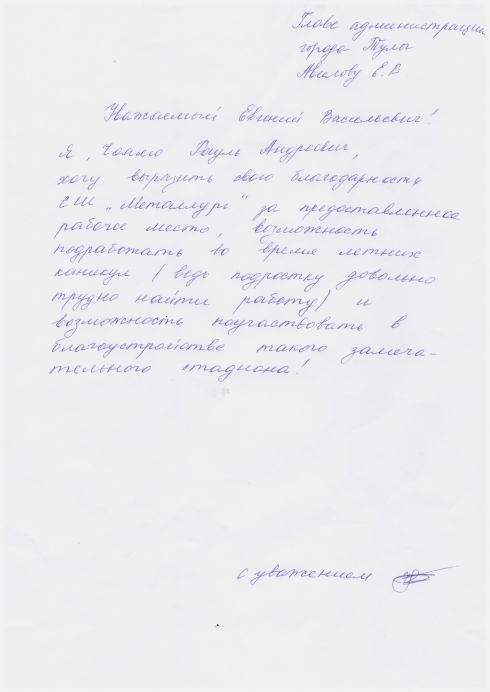 Главе администрации
города Тулы
Авилову Е.В
Уважаемый Евгений Васильевич!
Я, Рауль Андреевич,
хочу выразить свою благодарность
СШ „Металлург" за предоставленное
рабочее место, возможность
подработать во время летних
каникул (ведь подростку довольно
трудно найти работу) и
возможность поучаствовать в
благоустройстве такого замеча-
тельного стадиона!
с уважением